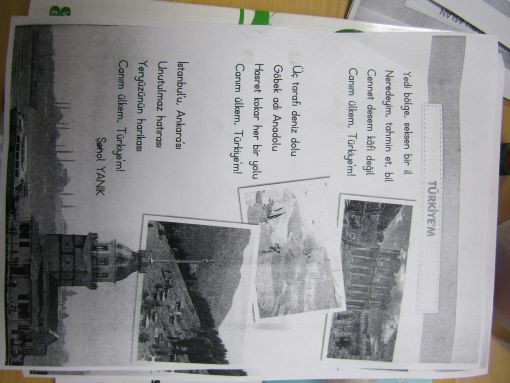 TÜRKİYE'M
Yedi bölge, seksen bir il
Neredeyim, tahmin et, bil
Cennet desem kâfi değil
Canım ülkem, Türkiye'm!
Üç tarafı deniz dolu
Göbek adı Anadolu
Hasret kokar her bir yolu
Canım ülkem, Türkiye'm!
İstanbul'u, Ankara'sı
Unutulmaz hatırası
Yeryüzünün harikası
Canım ülkem, Türkiye'm!
Şenol YANIK